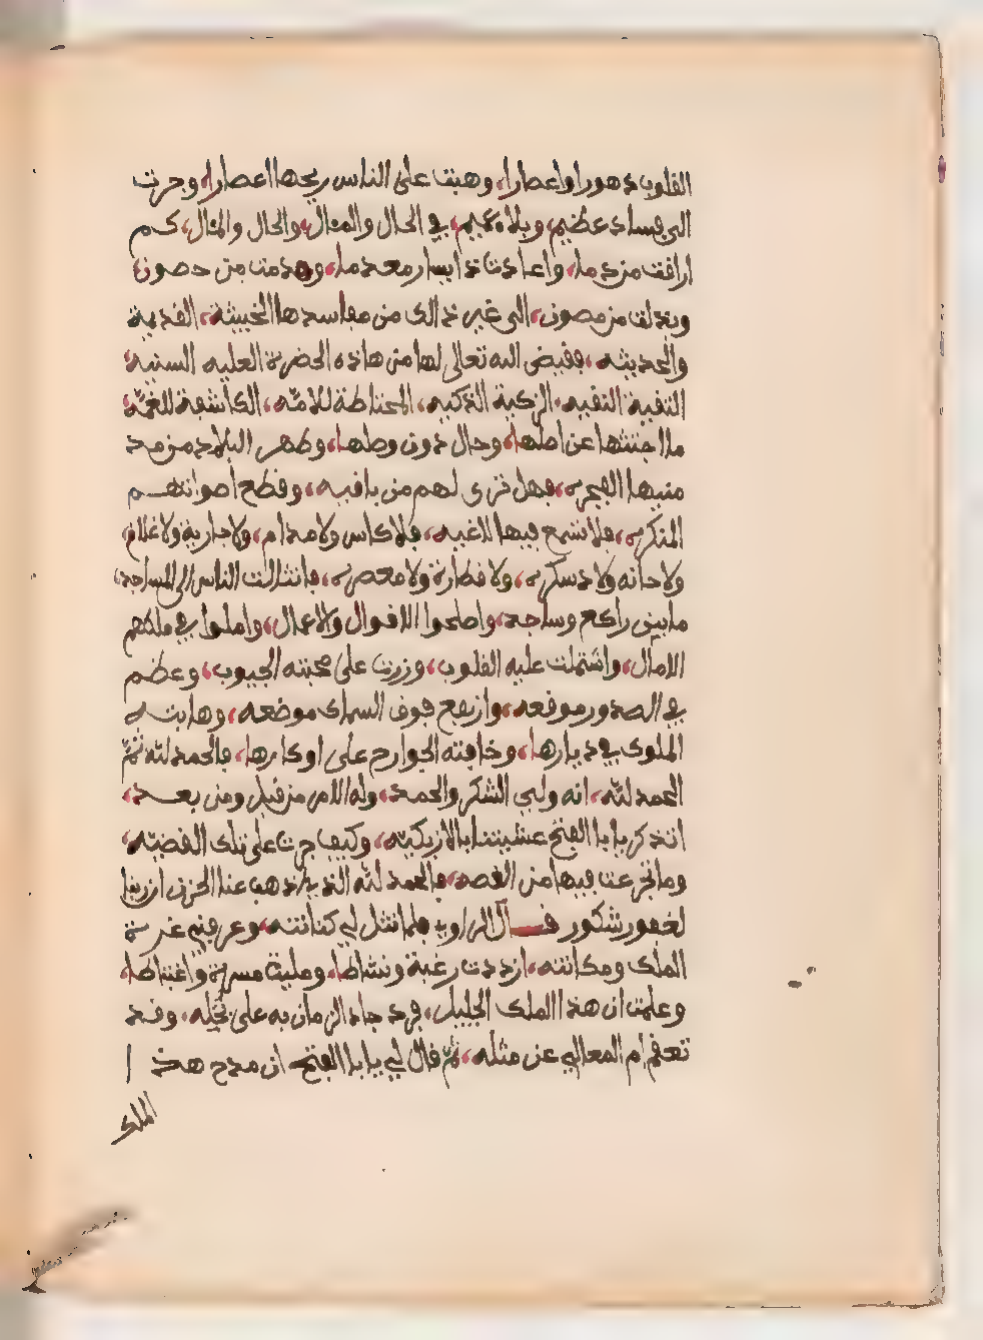 القلوب دهورا واعصارا، وهبت على الناس ريحها اعصارا، وجرت
الى فساد عظيم، وبلاء عميم، في الحال والمئال، والحال والمئال، كم
اراقت من دما، واعادت ذا ايسار معدما، وهدمت من حصون،
وبذلت من مصون، الى غير ذالك من مفاسدها الخبيثة، القديمة
والحديثه، فقيض الله تعالى لها من هاذه الحضرة العليه السنية
التقية النقيه، الزكية الذكيه، المحتاطة للامّه، الكاشفة للغمّة
ما اجتثها عن اصلها، وحال دون وصلها، وطهر البلاد من مد
منيها الفجرة، فهل ترى لهم من باقيه، وقطع اصواتهم
المنكرة، فلا تسمع فيها لاغيه، فلا كاس ولا مدام، ولا جارية ولا غلام،
ولا حانه ولا دسكرة، ولا خطارة ولا معصرة، فانثالت الناس الى المساجد،
ما بين راكع وساجد، واصلحوا الاقوال والاعمال، واملوا في ملكهم
الامال، واشتملت عليه القلوب، وزرت على محبته الجيوب، وعظم
في الصدور موقعه، وارتفع فوق السماك موضعه، وهابته
الملوك في ديارها، وخافته الجوارح على اوكارها، فالحمد لله ثم
الحمد لله، انه ولي الشكر والحمد، وله الامر من قبل ومن بعد،
اتذكر يا ابا الفتح عشيتنا بالازبكيّه، وكيف جرت على تلك القضيّه،
وما تجرعت فيها من الغصه، فالحمد لله الذي اذهب عنا الحزن ان ربنا
لغفور شكور قال الراوي فلما نثل لي كنانته، وعرفني غرة
الملك ومكانته، ازددت رغبة ونشاطا، ومليت مسرة واغتباطا،
وعلمت ان هذا الملك الجليل، فرد جاد الزمان به على بخله، وقد
تعقم ام المعالي عن مثله، ثم قال لي يا ابا الفتح ان مدح هذا
الملك